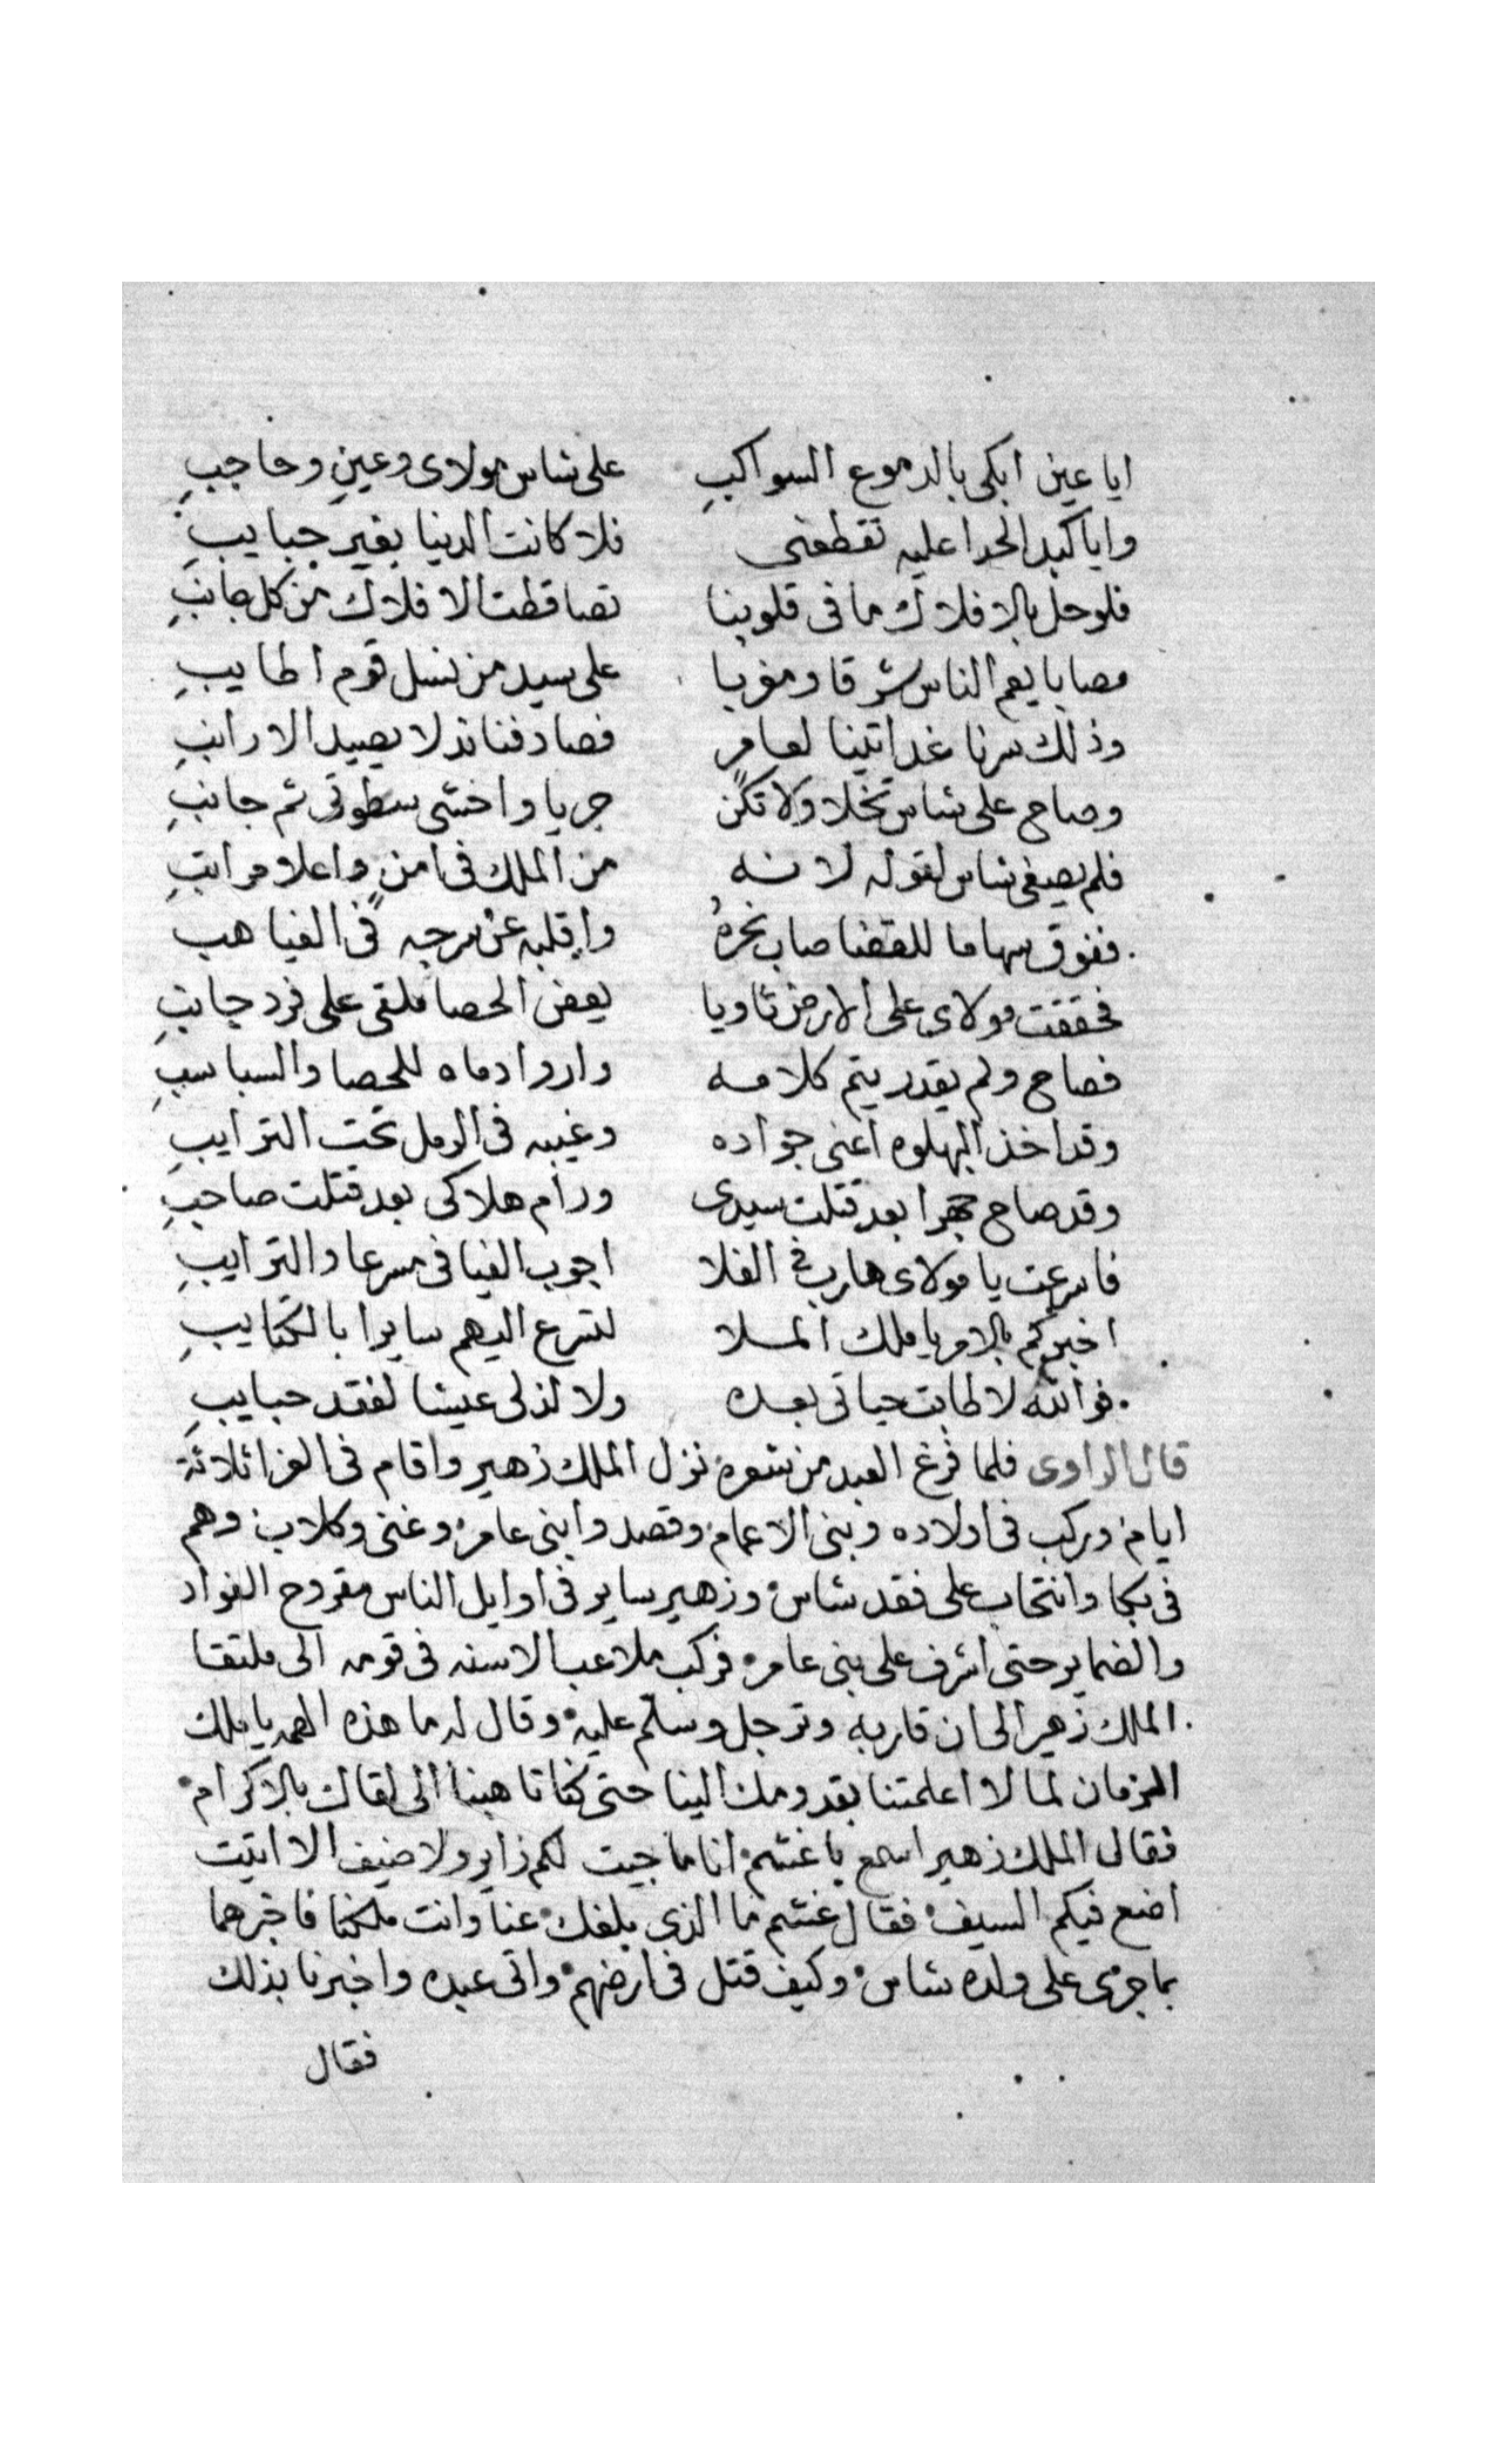 ايا عين ابكى بالدموع السواكبِ على شاس مولاى وعينِ وحاجبِ
وايا كبد الحرا عليه تقطعى فلا كانت الدنيا بغير حبايبِ
فلو حل بالافلاك ما فى قلوبنا تصاقطت الافلاك من كل جانبِ
مصابا يعم الناس شرقا ومغربا على سيد من نسل قوم اطايبِ
وذلك سرنا غدا تينا لعامرٍ فصادفنا نذلا يصيد الارانبِ
وصاح على شاس تخلا ولا تكن جريا واخشى سطوتى ثم جانبِ
فلم يصغى شاس لقوله لانه من الملك فى امنٍ واعلا مراتبِ
ففوق سهاما للقضا صاب نحرهُ واقلبه عن سرجه فى الغياهب
فحققت مولاى على الارض ثاويا يعض الحصا ملقى على فرد جانبِ
فصاح ولم يقدر يتم كلامه واروا دماه للحصا والسباسبِ
وقد اخذ البهلوه اعنى جواده وغيبه فى الرمل تحت الترايبِ
وقد صاح جهرا بعد قتلت سيدى ورام هلاكى بعد قتلت صاحبِ
فاسرعت يا مولاى هارب فى الفلا اجوب الفيافى مسرعا والترايبِ
اخبركم بالامر يا ملك الملا لتسرع اليهم سايرا بالكتايبِ
فوالله لا طابت حياتى بعده ولا لذ لى عيشا لفقد حبايبِ
قال الراوى فلما فرغ العبد من شعره نزل الملك زهير واقام فى العزا ثلاثة
ايام وركب فى اولاده وبنى الاعمام وقصدوا بنى عامر وغنى وكلاب وهم
فى بكا وانتحاب على فقد شاس وزهير ساير فى اوايل الناس مقروح الفواد
والضماير حتى اشرف على بنى عامر فركب ملاعب الاسنه فى قومه الى ملتقا
الملك زهير الى ان قاربه وترجل وسلم عليه وقال له ما هذه الهمه يا ملك
الزمان لما لا اعلمتنا بقدومك الينا حتى كنا تاهبنا الى لقاك بالاكرام
فقال الملك زهير اسمع يا غشم انا ما جيت لكم زاير ولا ضيف الا اتيت
اضع فيكم السيف فقال غشم ما الذى بلغك عنا وانت ملكنا فاخبرهما
بما جرى على ولده شاس وكيف قتل فى ارضهم واتى عبده واخبرنا بذلك
فقال